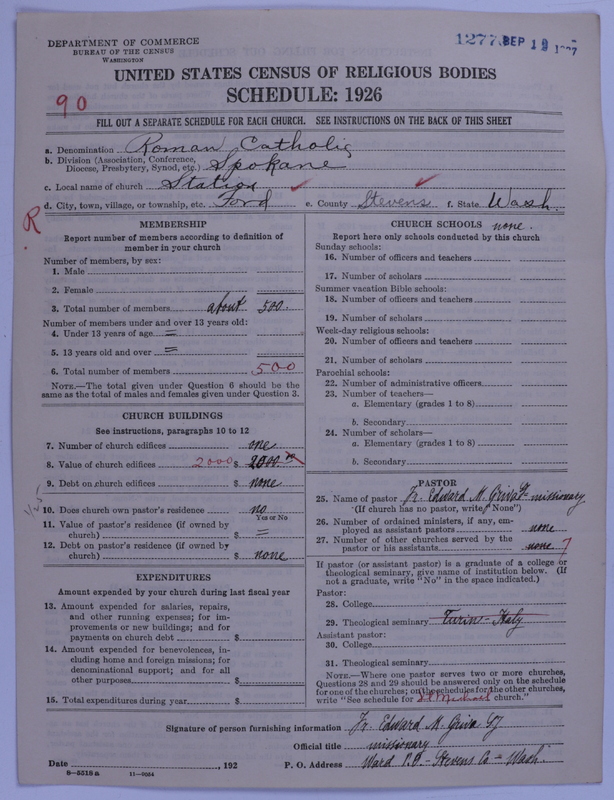 DEPARTMENT OF COMMERCE
BUREAU OF THE CENSUS
WASHINGTON
1277 SEP 19
UNITED STATES CENSUS OF RELIGIOUS BODIES
SCHEDULE: 1926
90
FILL OUT A SEPARATE SCHEDULE FOR EACH CHURCH. SEE INSTRUCTIONS ON THE BACK OF THIS SHEET
a. Denomination Roman Catholic
b. Division (Association, Conference, Diocese, Presbytery, Synod, etc.) Spokane
c. Local name of church Station
d. City, town, village, or township, etc. Ford e. County Stevens f. State Wash.
R
MEMBERSHIP
Report number of members according to definition of
member in your church
Number of members, by sex:
1. Male
2. Female
3. Total number of members about 500.
Number of members under and over 13 years old:
4. Under 13 years of age =
5. 13 years old and over =
6. Total number of members 500
NOTE.—The total given under Question 6 should be
same as the total of males and females given under Question 3.
CHURCH BUILDINGS
See instructions, paragraphs 10 to 12
7. Number of church edifices one
8. Value of church edifices 2000 $ 2000
9. Debt on church edifices $ none
10. Does church own pastor's residence no
Yes or No
11. Value of pastor's residence (if owned by
church) $ =
12. Debt on pastor's residence (if owned by
church) $ none
EXPENDITURES
Amount expended by your church during last fiscal year
13. Amount expended for salaries, repairs,
and other running expenses; for im-
provements or new buildings; and for
payments on church debt $
14. Amount expended for benevolences, in-
cluding home and foreign missions; for
denominational support; and for all
other purposes $
15. Total expenditures during year $
CHURCH SCHOOLS none.
Report here only schools conducted by this church
Sunday schools:
16. Number of officers and teachers
17. Number of scholars
Summer vacation Bible schools:
18. Number of officers and teachers
19. Number of scholars
Week-day religious schools:
20. Number of officers and teachers
21. Number of scholars
Parochial schools:
22. Number of administrative officers
23. Number of teachers—
a. Elementary (grades 1 to 8)
b. Secondary
24. Number of scholars—
a. Elementary (grades 1 to 8)
b. Secondary
PASTOR
25. Name of pastor Fr. Edward M. Griva SJ - missionary
(If church has no pastor, write "None")
26. Number of ordained ministers, if any, em-
ployed as assistant pastors none
27. Number of other churches served by the
pastor or his assistants none 7
If pastor (or assistant pastor) is a graduate of a college or
theological seminary, give name of institution below. (If
not a graduate, write "No" in the space indicated.)
Pastor:
28. College
29. Theological seminary Turin - Italy
Assistant pastor:
30. College
31. Theological seminary
NOTE.—Where one pastor serves two or more churches,
Questions 28 and 29 should be answered only on the schedule
for one of the churches; on the schedules for the other churches,
write "See schedule for St Michael church."
Signature of person furnishing information Fr. Edward M. Griva SJ
Official title missionary
Date , 192 P. O. Address Ward P.O - Stevens Co - Wash.
8—5518a 11—9054